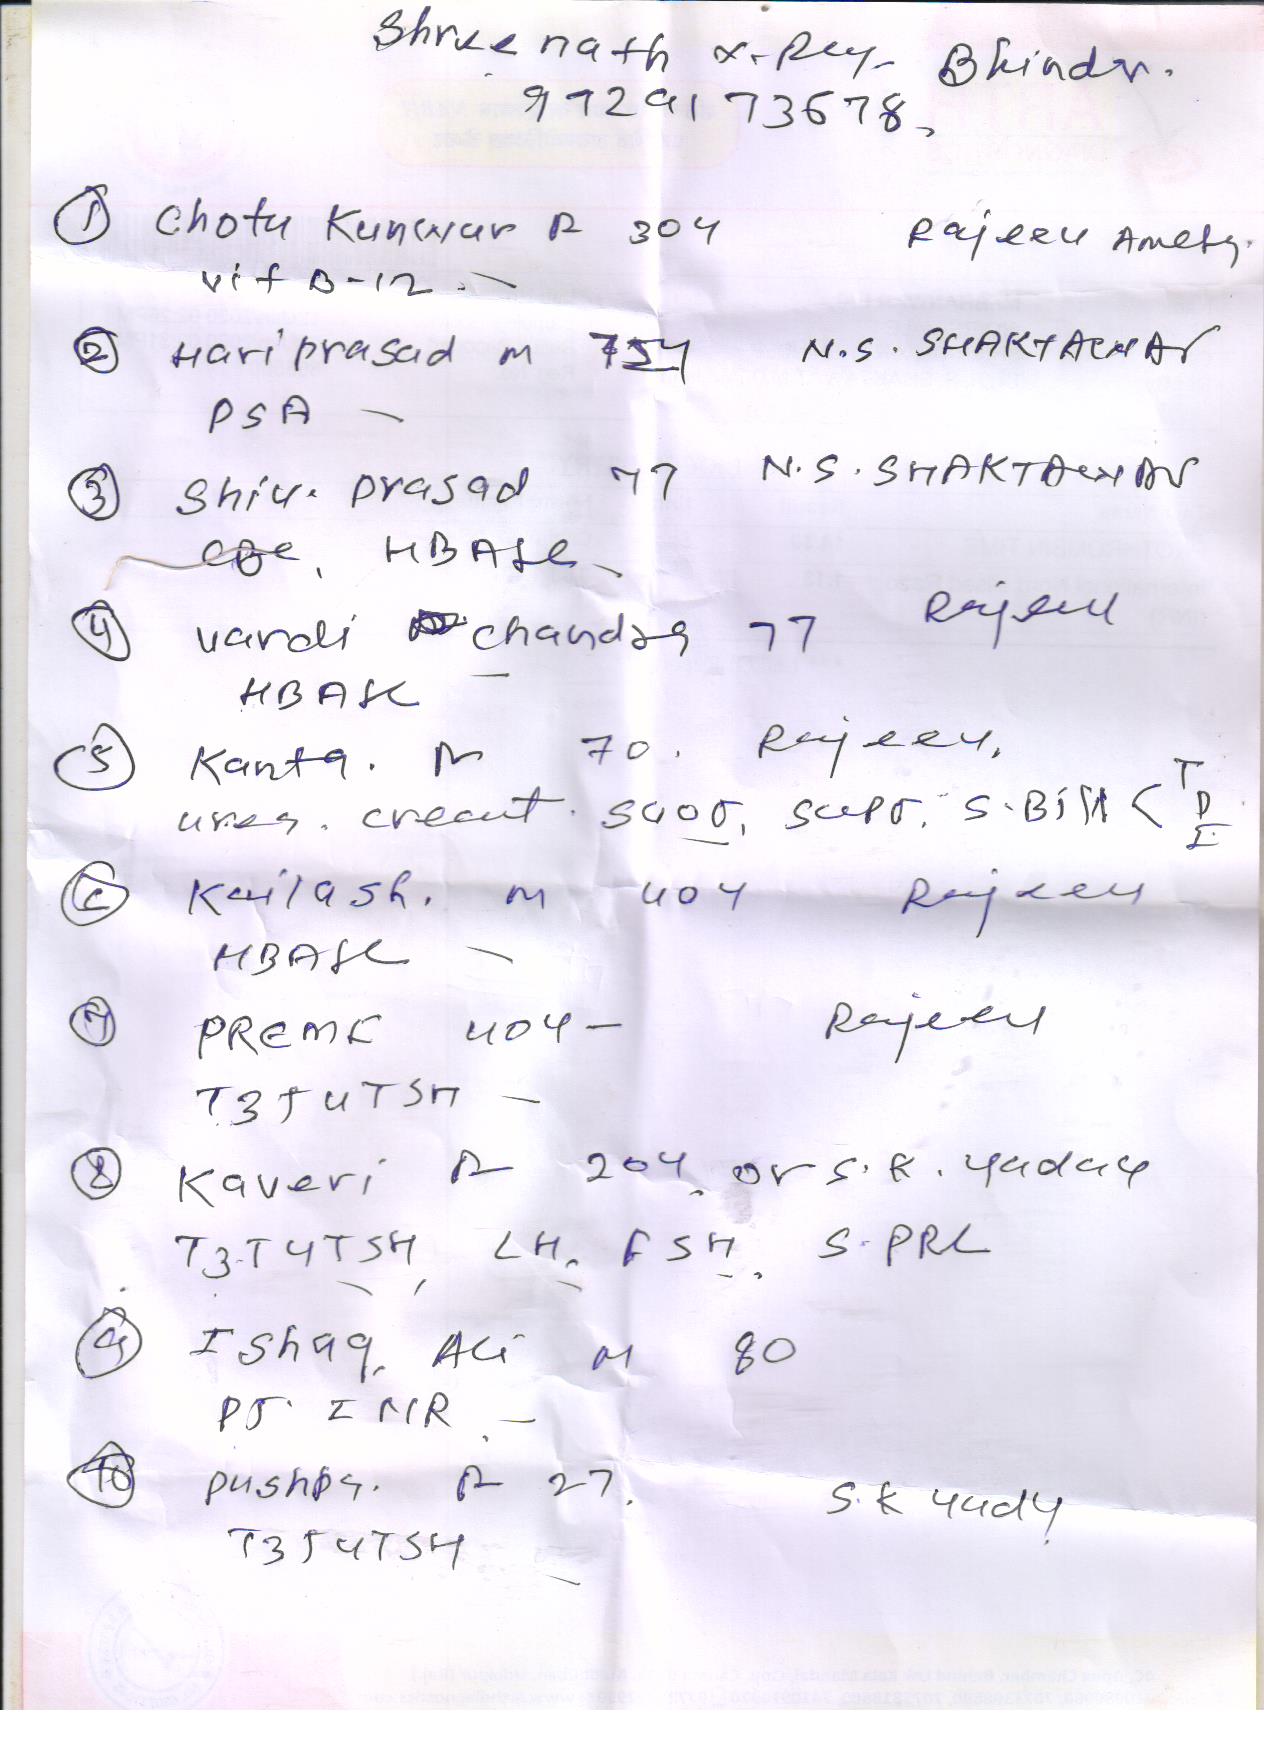 Shreenath X-Ray Bhinder.
9929173678,
① Chotu Kunwar F 30y Rajeev Ameta.
Vit B-12.
② Hari prasad M 75y N.S. SHAKTAWAT
PSA
③ Shiv. prasad 77 N.S. SHAKTAWAT
CBC, HBA1C
④ Vardi chandra 77 Rajeev
HBA1C
⑤ Kanta. F 70. Rajeev,
urea. creat. SGOT, SGPT, S.Bill < T
D
I
⑥ Kailash. M 40y Rajeev
HBA1C
⑦ PREM F 40y - Rajeev
T3T4TSH
⑧ Kaveri F 20y. Dr S.K. Yadav
T3.T4TSH, LH, FSH, S.PRL
⑨ Ishaq Ali M 80
PT INR
⑩ Pushpa. F 27. S.K Yadv
T3T4TSH